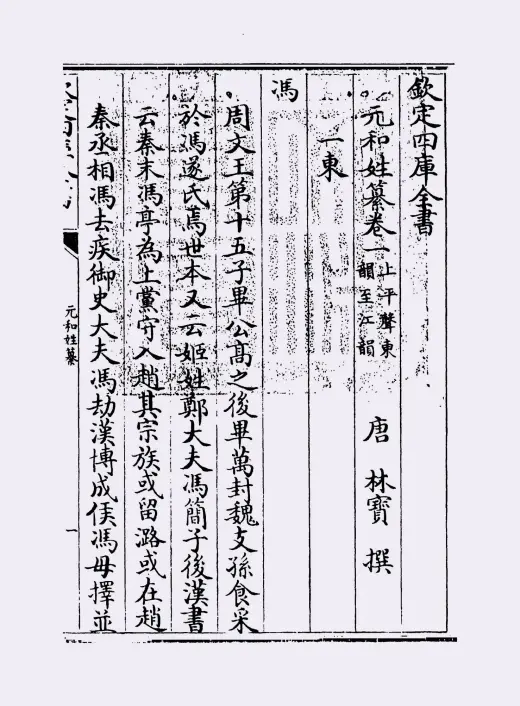 欽定四庫全書
元和姓纂卷一 上平聲東韻至江韻
唐 林寶 撰
一東
馮
周文王第十五子畢公髙之後畢萬封魏支孫食采
於馮遂氏焉世本又云姬姓鄭大夫馮簡子後漢書
云秦末馮亭為上黨守入趙其宗族或留潞或在趙
秦丞相馮去疾御史大夫馮劫漢博成侯馮毋擇並
元和姓纂
一